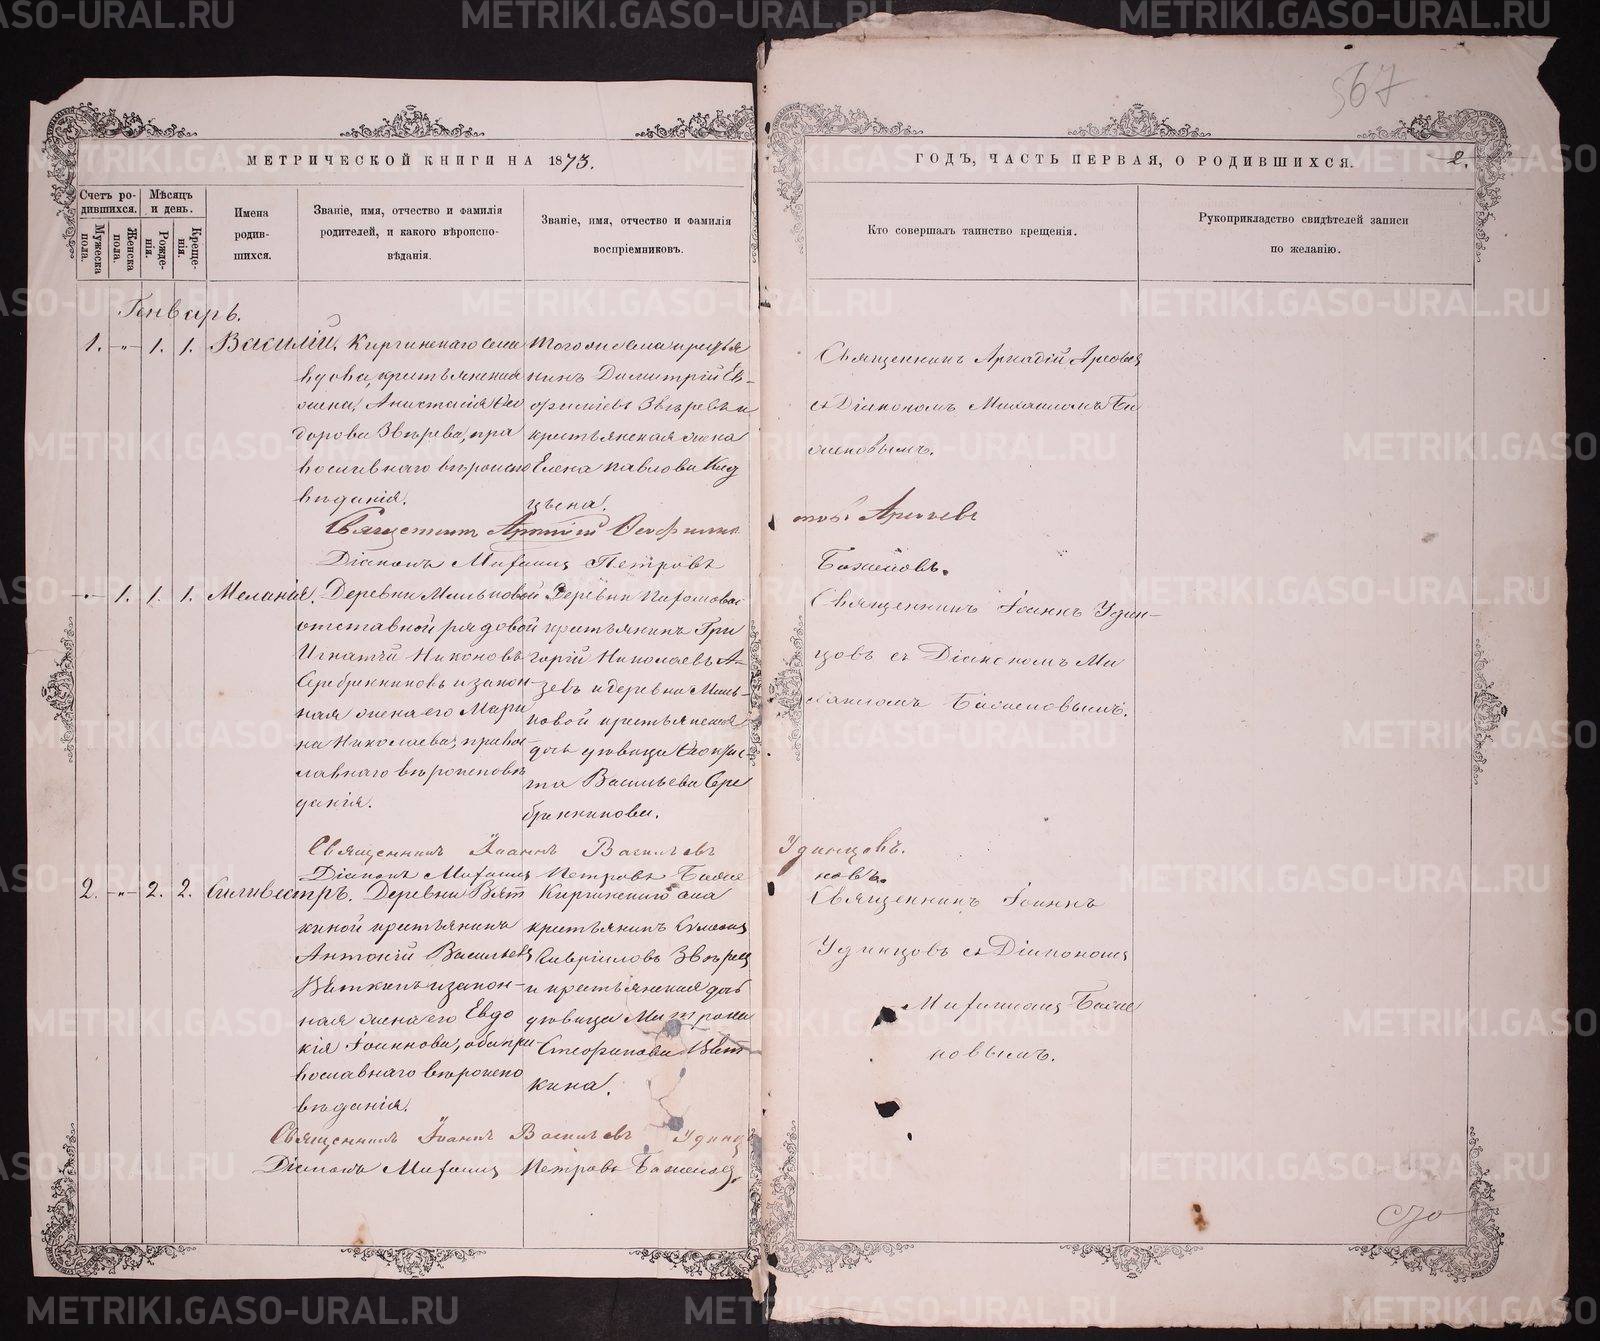 567
МЕТРИЧЕСКОЙ КНИГИ НА 1873.
ГОДЪ, ЧАСТЬ ПЕРВАЯ, О РОДИВШИХСЯ.
2.
Счетъ родившихся.
Мужеска пола.
Женска пола.
Мѣсяцъ и день.
Рожденія.
Крещенія.
Имена родившихся.
Званіе, имя, отчество и фамилія родителей, и какого вѣроисповѣданія.
Званіе, имя, отчество и фамилія воспріемниковъ.
Кто совершалъ таинство крещенія.
Рукоприкладство свидѣтелей записи по желанію.
Генварь.
1. -"- 1. 1. Василій.
Киргинскаго села
вдова, крестьянская
жена, Анастасія
дорова Звѣрева, пра
вославнаго вѣроиспо
вѣданія.
Тогоже села крестья
нинъ Димитрій Ев-
Звѣревъ и
крестьянская жена
Елена Павлова
Священникъ Аркадій
съ Діакономъ Михаиломъ Ба
женовымъ.
Священникъ
Діаконъ Михаилъ Петровъ
Баженовъ.
-"- 1. 1. 1. Меланія.
Деревни Мильковой
отставной рядовой
Игнатій Никоновъ
Серебренниковъ и закон-
ная жена его Мари
на Николаева, право
славнаго вѣроисповѣ
данія.
Деревни
крестьянинъ Гри
горій Николаевъ
и деревни Миль-
ковой крестьянская
дочь дѣвица
Васильева Сере
бренникова.
Священникъ Іоаннъ Удин-
цовъ съ Діакономъ Ми
хаиломъ Баженовымъ.
Священникъ Іоаннъ Васильевъ
Удинцовъ.
Діаконъ Михаилъ Петровъ Баже
новъ.
2. -"- 2. 2. Силивестръ.
Деревни Вят
киной крестьянинъ
Антоній Васильевъ
Вяткинъ и закон-
ная жена его Евдо
кія Іоаннова, оба пра
вославнаго вѣроиспо
вѣданія.
Киргинскаго села
крестьянинъ
Гавріиловъ Звѣревъ
и крестьянская дочь
дѣвица Матрона
Стефанова Вят
кина.
Священникъ Іоаннъ
Удинцовъ съ Діакономъ
Михаиломъ Баже
новымъ.
Священникъ Іоаннъ Васильевъ Удинцо
Діаконъ Михаилъ Петровъ Баженовъ.
METRIKI.GASO-URAL.RU